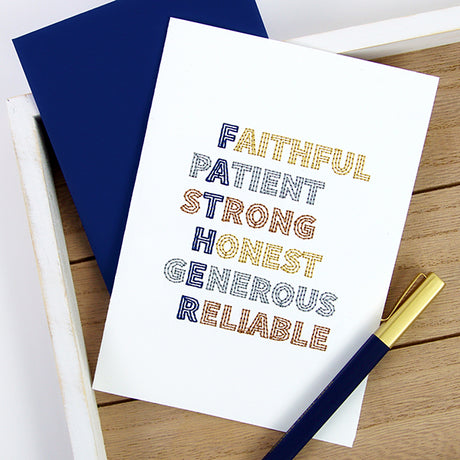 FAITHFUL
PATIENT
STRONG
HONEST
GENEROUS
RELIABLE